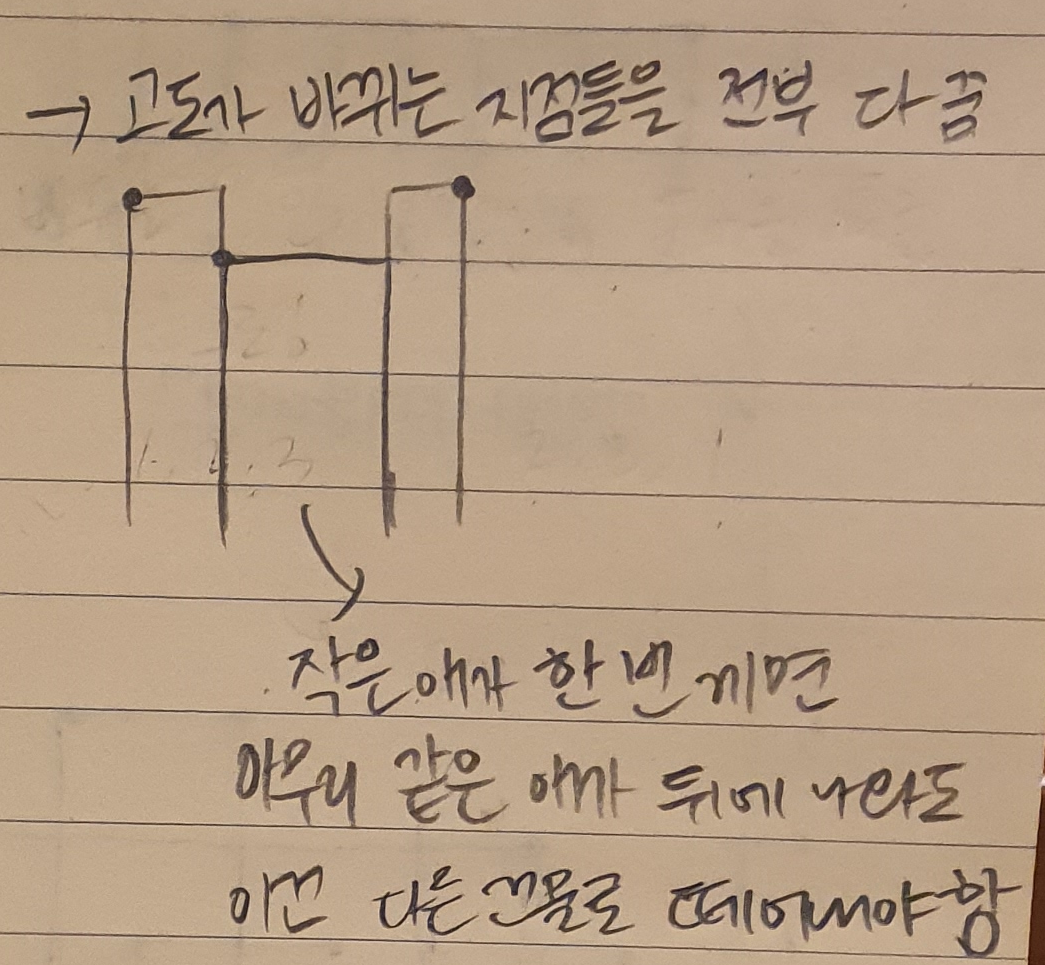 → 고도가 바뀌는 지점들을 전부 다 줌
작은애가 한 번 끼면
아무리 같은 애가 뒤에 나와도
이건 다른 건물로 떼어내야 함